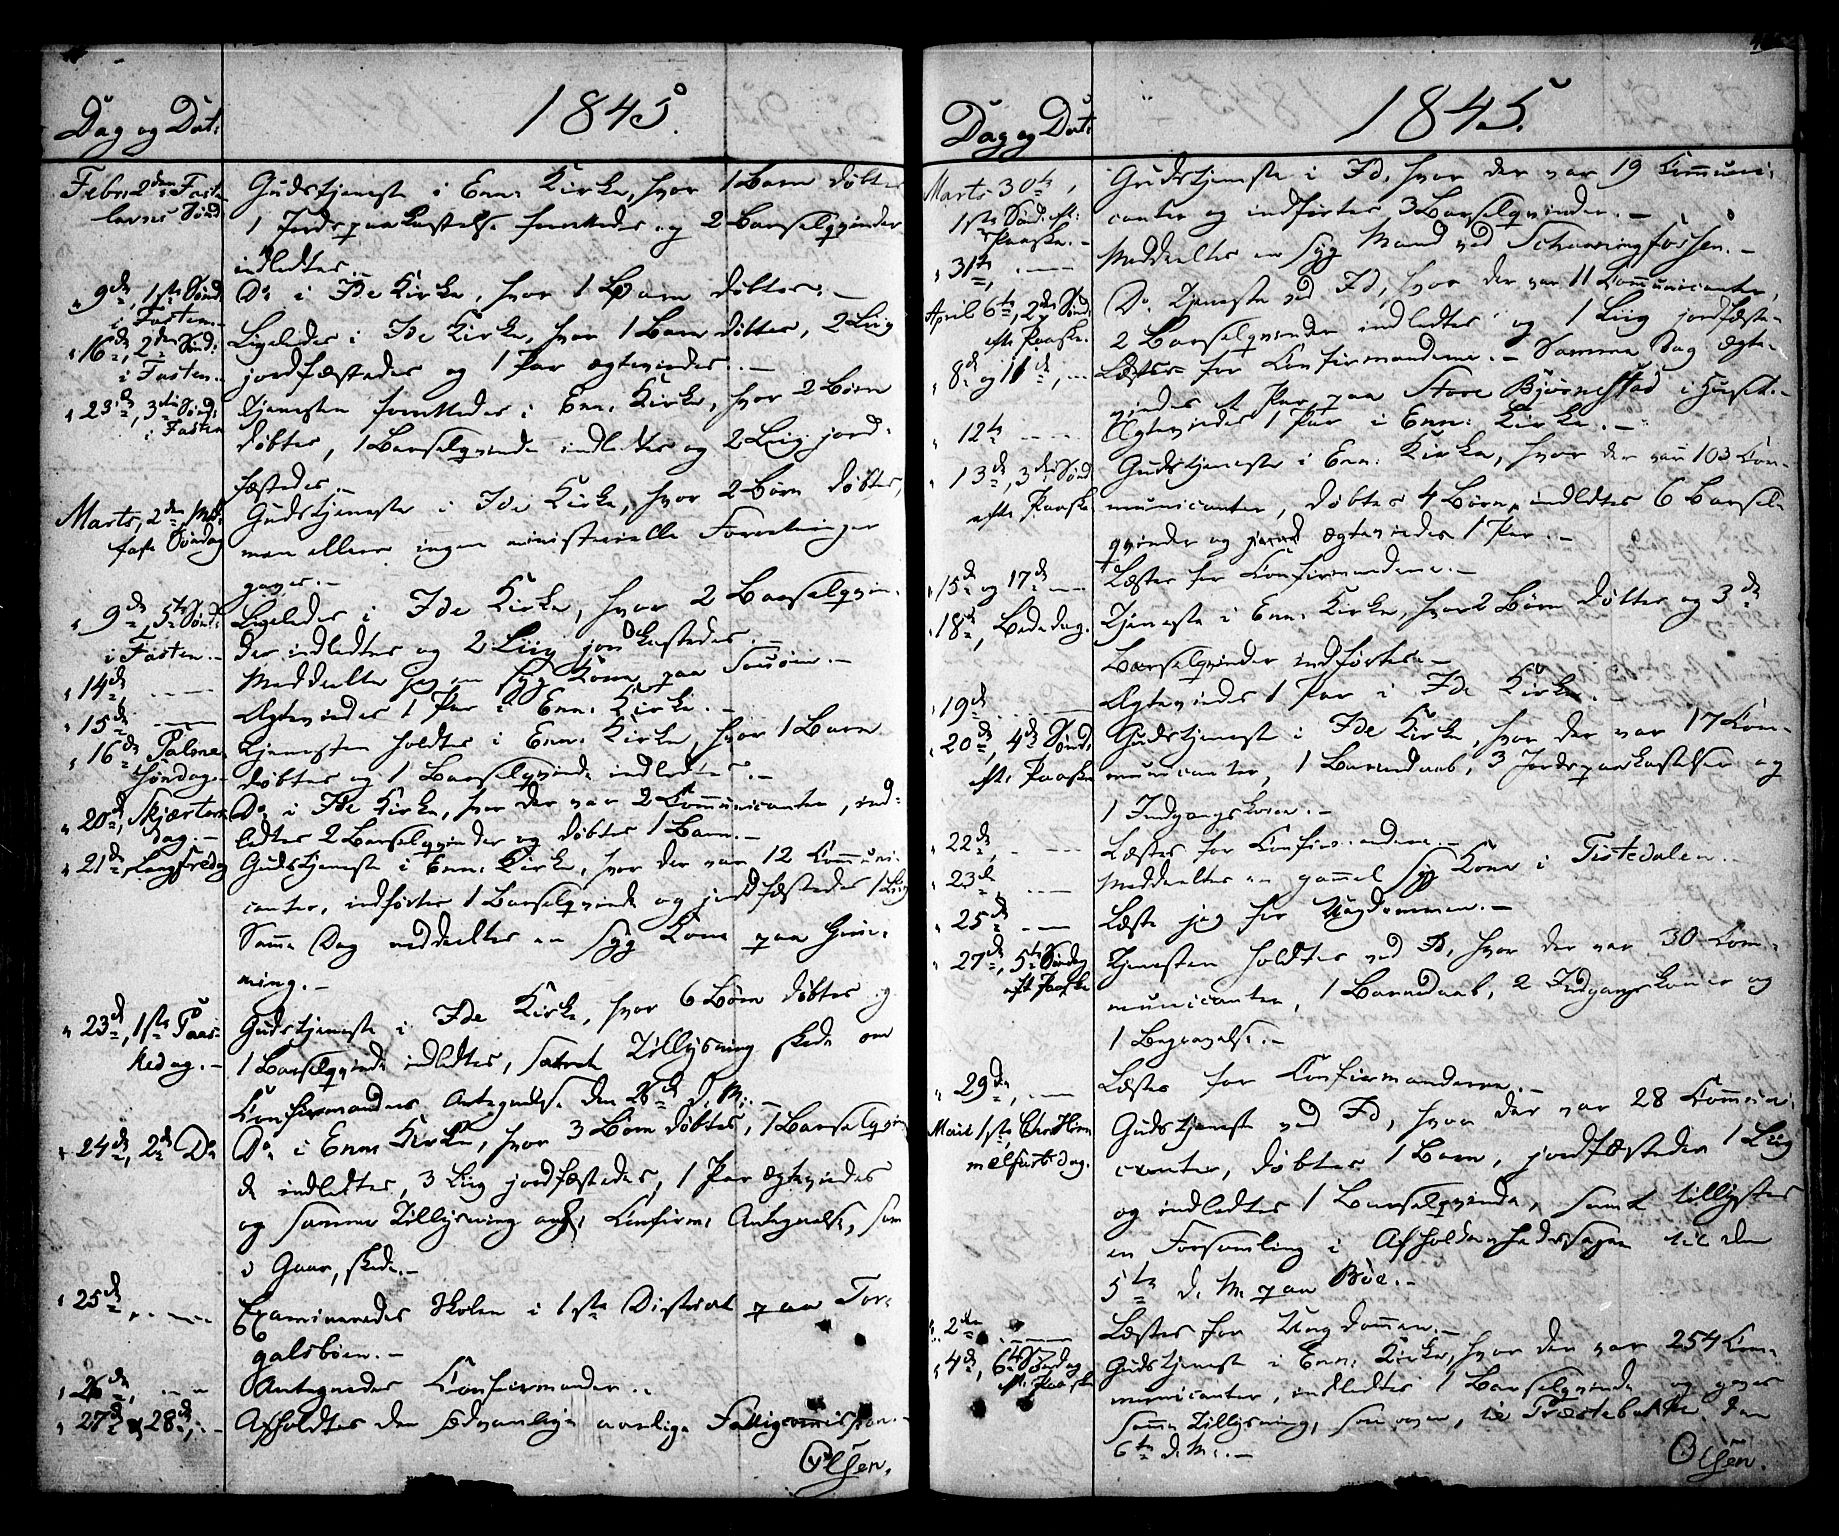 Dag og Dat: 1845.
Febr. 2den Faste- Gudstjeneste i Enn: Kirke, hvor 1 Barn døbtes
lavns Sønd: 1 Jordspaakastelse forrettedes og 2 Barselqvinder
indledtes.
" 9de, 1ste Sønd: Do i Ide Kirke, hvor 1 Barn døbtes.
i Fasten.
" 16de, 2den Sønd: Ligeledes i Ide Kirke, hvor 1 Barn døbtes, 2 Liig
i Fasten. jordfæstedes og 1 Par ægteviedes.
" 23de, 3die Sønd: Tjenesten forrettedes i Enn: Kirke, hvor 2 Børn
i Fasten døbtes, 1 Barselqvinde indledtes og 2 Liig jord-
fæstedes.
Marts, 2den Mid- Gudstjeneste i Ide Kirke, hvor 2 Børn døbtes,
faste Søndag men ellers ingen ministerielle Forretninger
gaves.
" 9de, 5te Sønd: Ligeledes i Ide Kirke, hvor 2 Barselqvin-
i Fasten. der indledtes og 2 Liig jordkastedes.
" 14de, Meddeelte jeg en syg Kone paa
" 15de Ægteviedes 1 Par i Enn: Kirke.
" 16de Palme Tjenesten holdtes i Enn: Kirke, hvor 1 Barn
Søndag. døbtes og 1 Barselqvinde indledtes.
" 20de, Skjærtors- Do i Ide Kirke, hvor der var 2 Communicanter, ind-
dag. ledtes 2 Barselqvinder og døbtes 1 Barn.
" 21de, Langfredag Gudstjeneste i Enn: Kirke, hvor der var 12 Communi-
canter, indførtes 1 Barselqvinde og jordfæstedes 1 Liig
Samme Dag meddeeltes en syg Kone paa
ning.
" 23de, 1ste Paas- Gudstjeneste i Ide Kirke, hvor 6 Børn døbtes og
kedag. 1 Barselqvinde indledtes, samt Tillysning skede om
Confirmanders Antegnelse den 26de d. M.
" 24de, 2de Do Do i Enn: Kirke, hvor 3 Børn døbtes, 1 Barselqvin-
de indledtes, 3 Liig jordfæstedes, 1 Par ægteviedes
og samme Tillysning ang: Confirm: Antegnelse, som
i Gaar, skede.
" 25de, Examineredes Skolen i 1ste District paa Tor-
galsbøen.
" 26de, Antegnedes Confirmander.
" 27de og 28de, Afholdtes den sædvanlige aarlige Fattigcommission.
Olsen.
Dag og Dat: 1845.
Marts 30te, Gudstjeneste i Id, hvor der var 19 Communi-
1ste Sønd: eft: canter og indførtes 3 Barselqvinder.
Paaske.
" 31te, Meddeeltes en syg Mand ved Schaaningfossen.
April 6te, 2den Sønd: Do Tjeneste ved Id, hvor der var 11 Communicanter,
efte Paaske. 2 Barselqvinder indledtes og 1 Liig jordfæste-
" 8de og 11de, Læstes for Confirmanderne. Samme Dag ægte-
viedes et Par paa Store Bjørnestad i Huset.
" 12te Ægteviedes 1 Par i Enn: Kirke.
" 13de, 3die Sønd: Gudstjeneste i Enn: Kirke, hvor der var 103 Com-
efte Paaske municanter, døbtes 4 Børn, indledtes 6 Barsel-
qvinder og ægteviedes 1 Par.
" 15de og 17de Læstes for Confirmanderne.
" 18de, Bededag. Tjeneste i Enn: Kirke, hvor 2 Børn døbtes og 3de
Barselqvinder indførtes.
" 19de Ægteviedes 1 Par i Ide Kirke.
" 20de, 4de Sønd: Gudstjeneste i Ide Kirke, hvor der var 17 Com-
efte Paaske municanter, 1 Barnedaab, 3 Jordspaakastelser og
1 Indgangskone.
" 22de, Læstes for Confirmanderne.
" 23de, Meddeeltes en gammel syg Kone i Tistedalen.
" 25de Læste jeg for Ungdommen.
" 27de, 5te Søndag Tjenesten holdtes ved Id, hvor der var 30 Com-
eft. Paaske municanter, 1 Barnedaab, 2 Indgangskoner og
1 Begravelse.
" 29de, Læstes for Confirmanderne.
Maii 1ste, Chr: Him- Gudstjeneste ved Id, hvor der var 28 Communi-
melfartsdag. canter, døbtes 1 Barn, jordfæstedes 1 Liig
og indledtes 1 Barselqvinde, samt tillystes
en Forsamling i Afholdenhedssagen til den
5te d. M. paa Böe.
" 2den Læstes for Ungdommen.
" 4de, 6te Søndag Gudstjeneste i Enn: Kirke, hvor der var 254 Com-
eft. Paaske municanter, indledtes 1 Barselqvinde og gaves
samme Tillysning, som ovenf., til Præstebakke den
6te d. M.
Olsen.